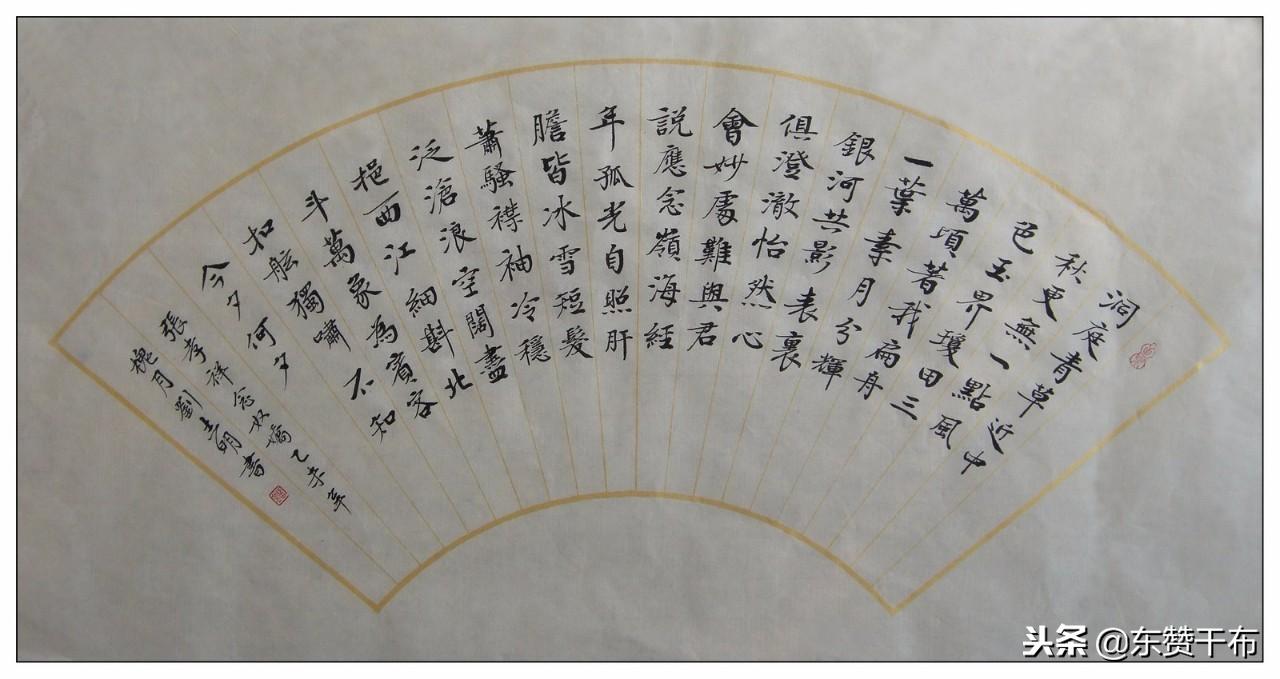 洞庭青草近中
秋更無一點風
色玉界瓊田三
萬頃著我扁舟
一葉素月分輝
銀河共影表裏
俱澄澈怡然心
會妙處難與君
説應念嶺海經
年孤光自照肝
膽皆冰雪短髮
蕭騷襟袖冷穩
泛滄浪空闊盡
挹西江細斟北
斗萬象為賓客
扣舷獨嘯不知
今夕何夕
張孝祥念奴嬌乙未年
槐月劉明書
头条 @东赞干布